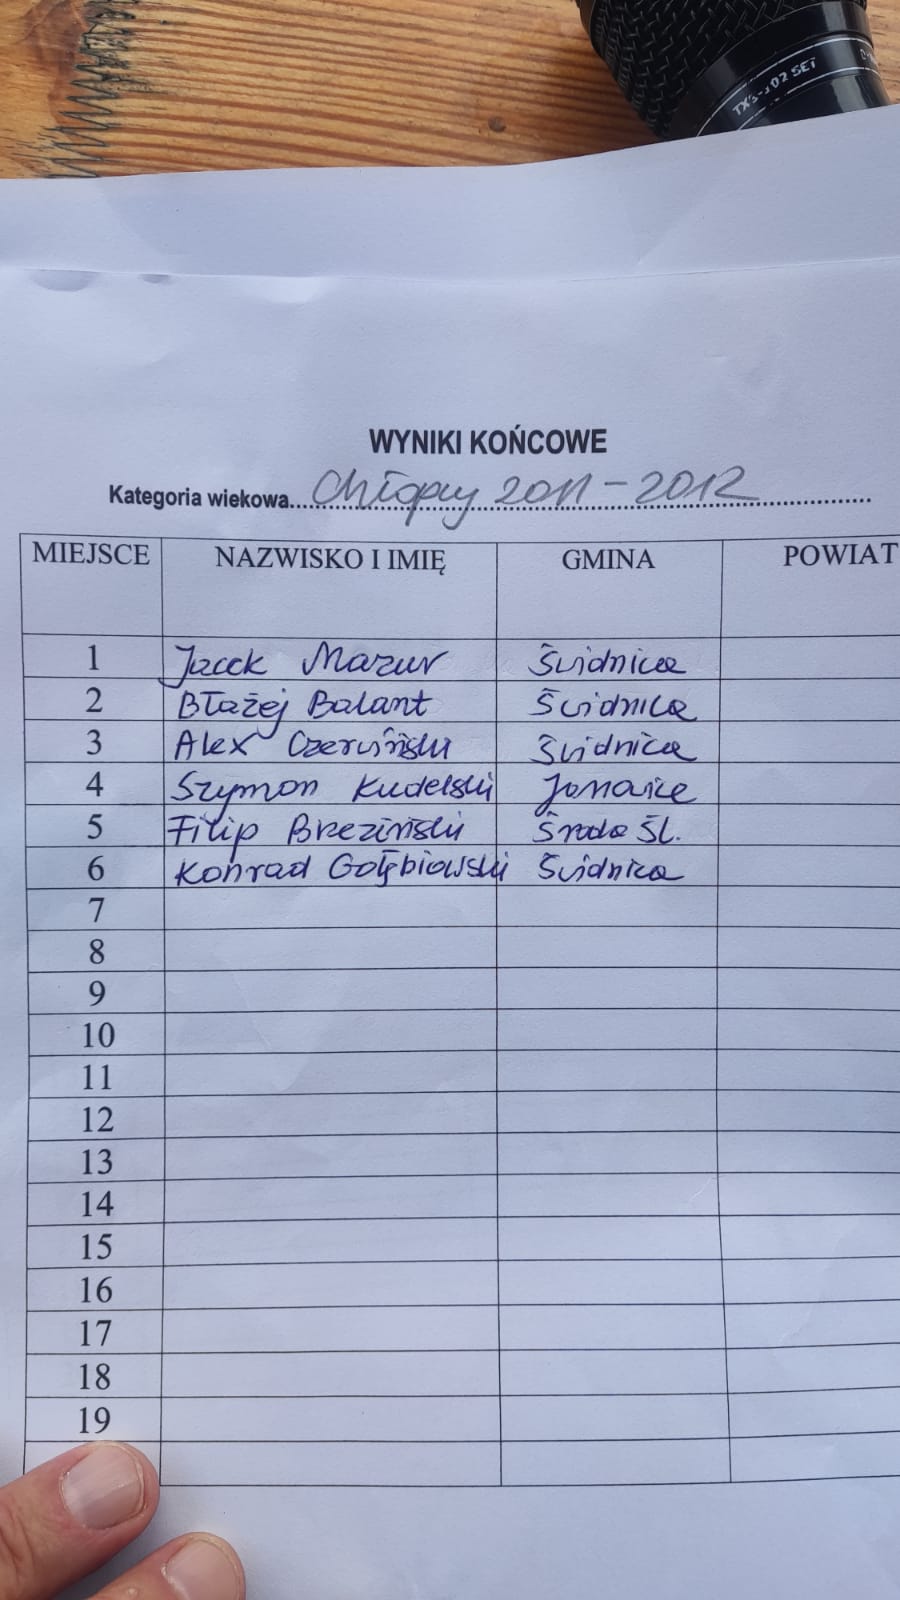 TXS-202 SET
WYNIKI KOŃCOWE
Kategoria wiekowa....Chłopcy 2011-2012
MIEJSCE NAZWISKO I IMIĘ GMINA POWIAT
1 Jacek Mazur Świdnica
2 Błażej Balant Świdnica
3 Alex Czerwiński Świdnica
4 Szymon Kudelski
5 Filip Breziński Środa Śl.
6 Konrad Gołębiowski Świdnica
7
8
9
10
11
12
13
14
15
16
17
18
19